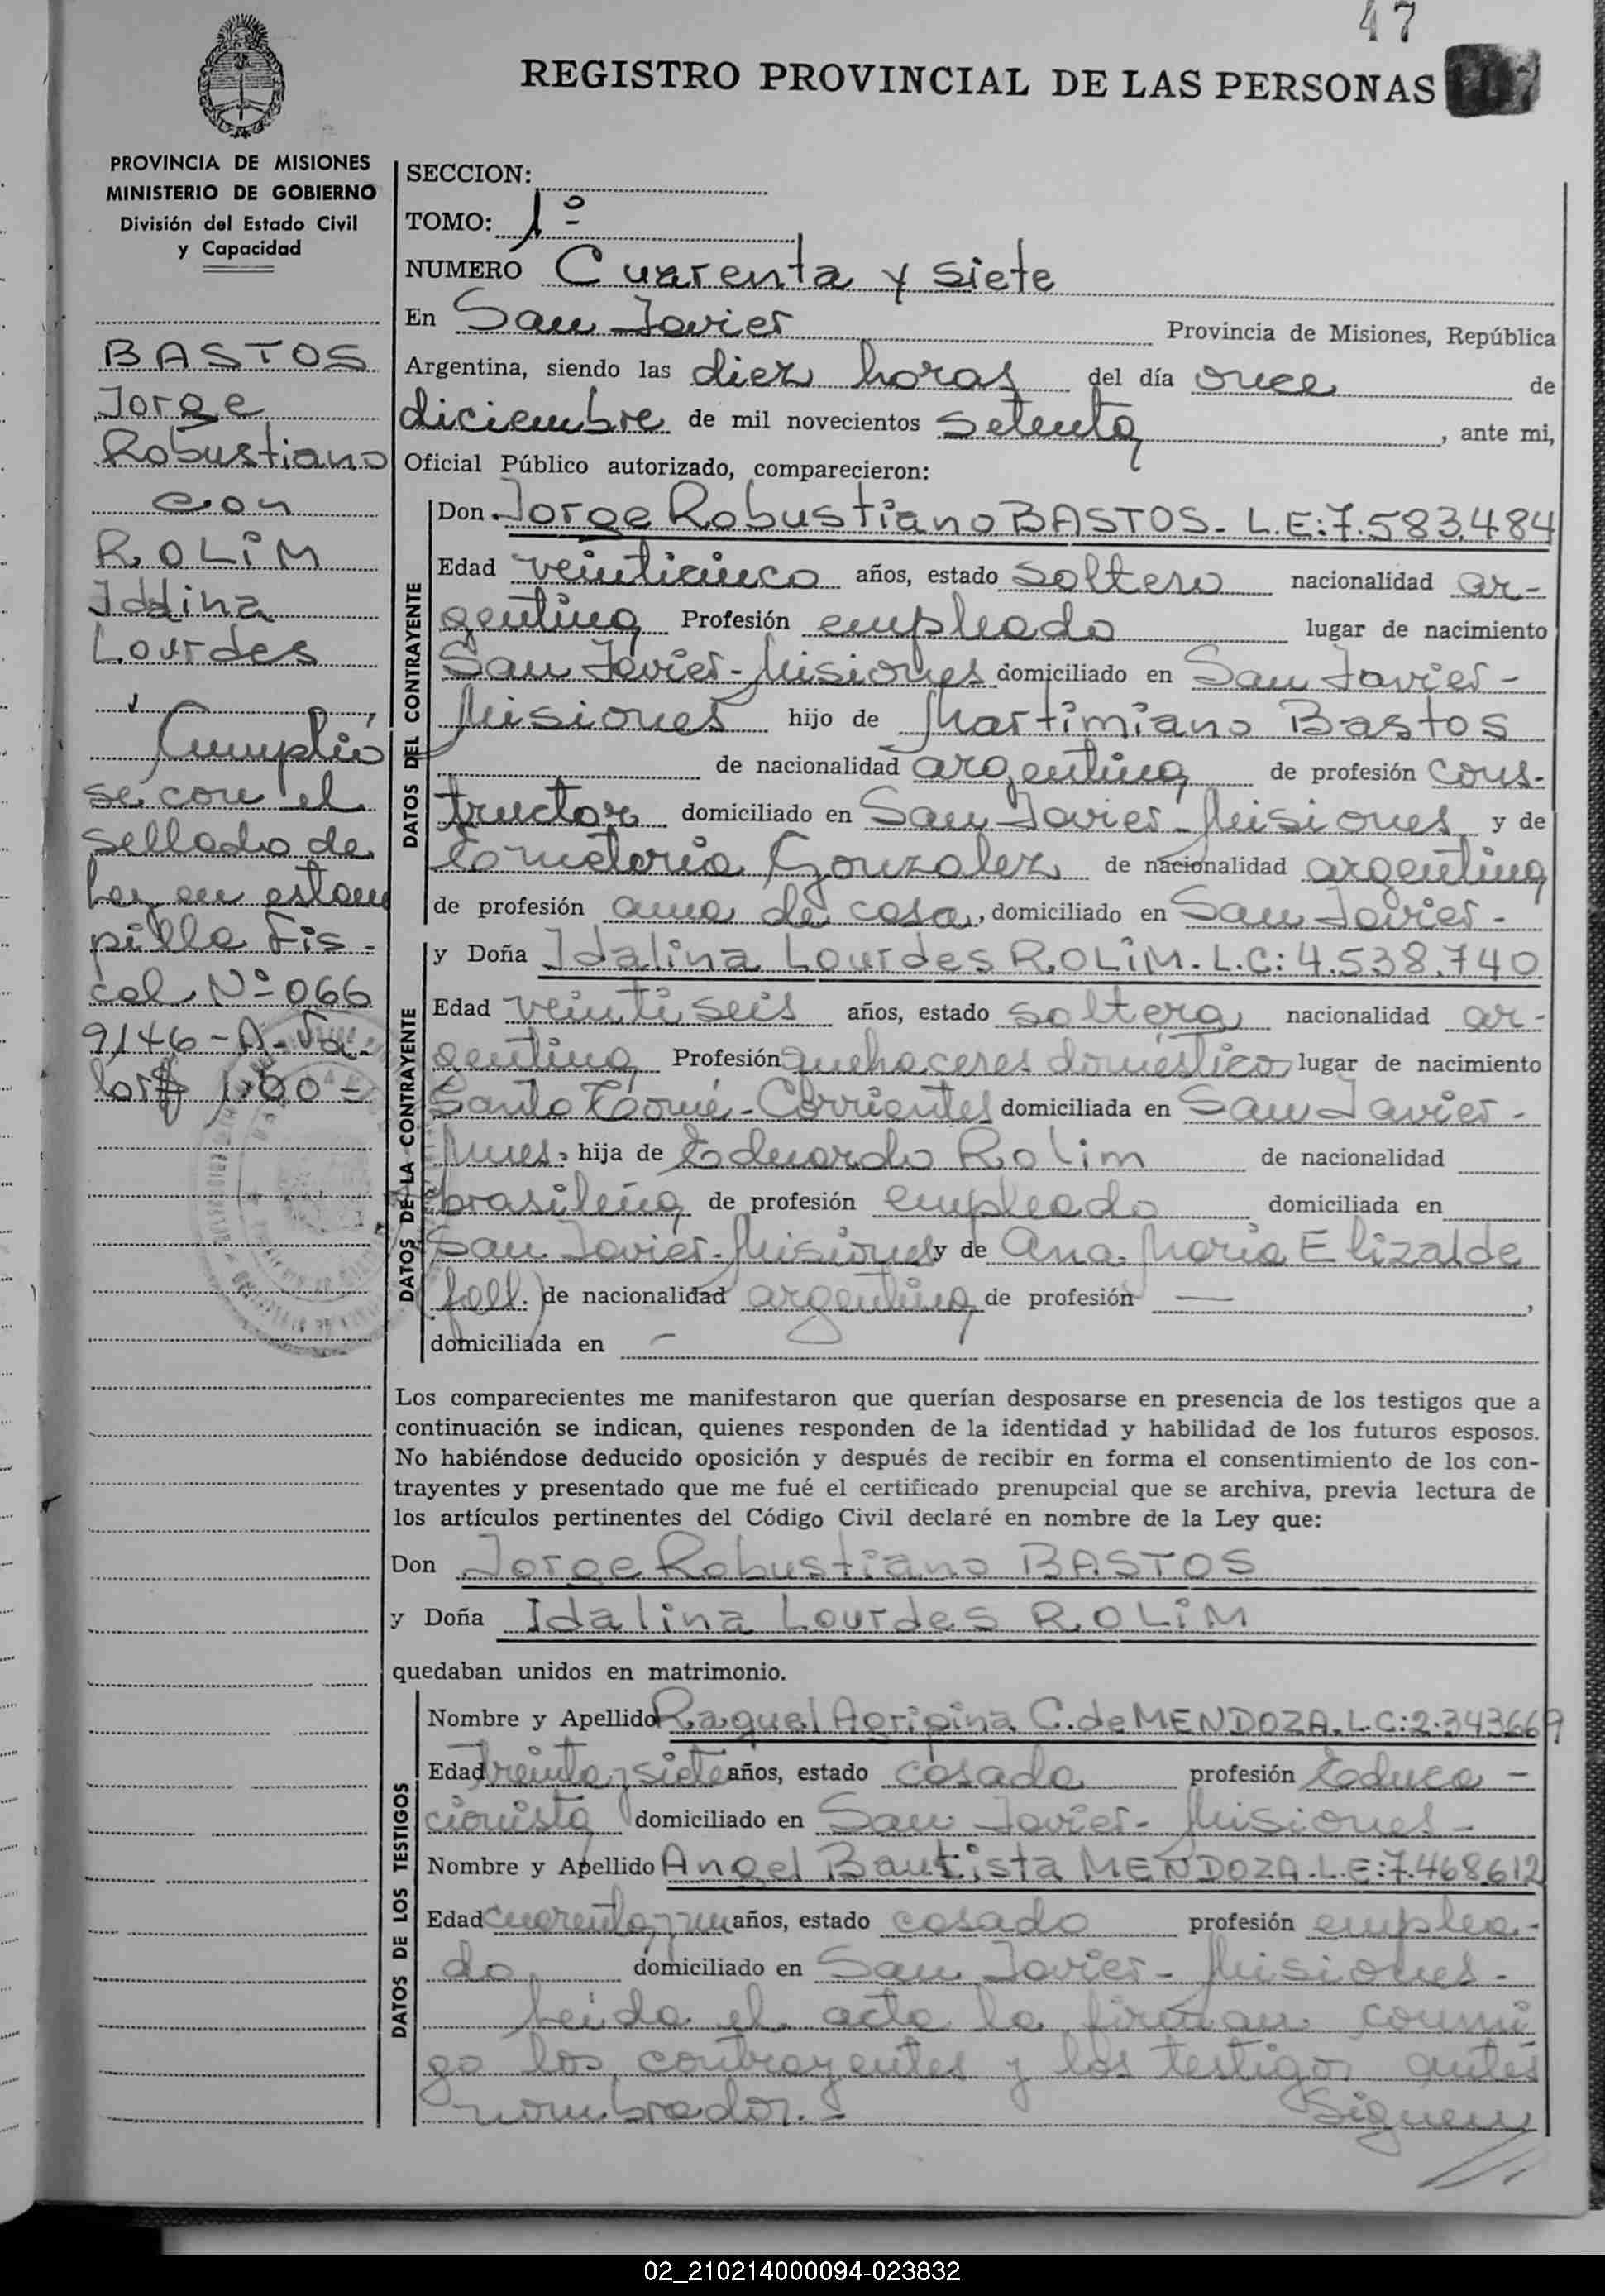 47
REGISTRO PROVINCIAL DE LAS PERSONAS
PROVINCIA DE MISIONES
MINISTERIO DE GOBIERNO
División del Estado Civil
y Capacidad
BASTOS
Jorge
Robustiano
con
ROLIM
Idalina
Lourdes
Cumplió
se con el
sellado de
Ley en estam
pilla Fis-
cal Nº 066
9146-A-Va-
lor $ 1,00=
SECCION:
TOMO: 1º
NUMERO Cuarenta y siete
En San Javier Provincia de Misiones, República
Argentina, siendo las diez horas del día once de
diciembre de mil novecientos setenta, ante mi,
Oficial Público autorizado, comparecieron:
DATOS DEL CONTRAYENTE
Don Jorge Robustiano BASTOS- L.E:7.583.484
Edad veinticinco años, estado soltero nacionalidad ar-
gentina Profesión empleado lugar de nacimiento
San Javier-Misiones domiciliado en San Javier-
Misiones hijo de Martimiano Bastos
de nacionalidad argentina de profesión cons-
tructor domiciliado en San Javier-Misiones y de
Gonzalez de nacionalidad argentina
de profesión ama de casa, domiciliado en San Javier-
DATOS DE LA CONTRAYENTE
y Doña Idalina Lourdes ROLIM. L.C:4.538.740
Edad veintiseis años, estado soltera nacionalidad ar-
gentina Profesión quehaceres doméstico lugar de nacimiento
Santo Tomé-Corrientes domiciliada en San Javier-
Mnes. hija de Eduardo Rolim de nacionalidad
brasileña de profesión empleado domiciliada en
San Javier-Misiones y de Ana Maria Elizalde
(fall.) de nacionalidad argentina de profesión —,
domiciliada en -
Los comparecientes me manifestaron que querían desposarse en presencia de los testigos que a
continuación se indican, quienes responden de la identidad y habilidad de los futuros esposos.
No habiéndose deducido oposición y después de recibir en forma el consentimiento de los con-
trayentes y presentado que me fué el certificado prenupcial que se archiva, previa lectura de
los artículos pertinentes del Código Civil declaré en nombre de la Ley que:
Don Jorge Robustiano BASTOS
y Doña Idalina Lourdes ROLIM
quedaban unidos en matrimonio.
DATOS DE LOS TESTIGOS
Nombre y Apellido Raquel Agripina C. de MENDOZA. L.C:2.343669
Edad treinta y siete años, estado casada profesión Educa-
cionista domiciliado en San Javier-Misiones-
Nombre y Apellido Angel Bautista MENDOZA. L.E:7.468612
Edad cuarenta y un años, estado casado profesión emplea-
do domiciliado en San Javier-Misiones-
Leida el acta la firman conmi
go los contrayentes y los testigos antes
nombrados.- Siguen
02_210214000094-023832